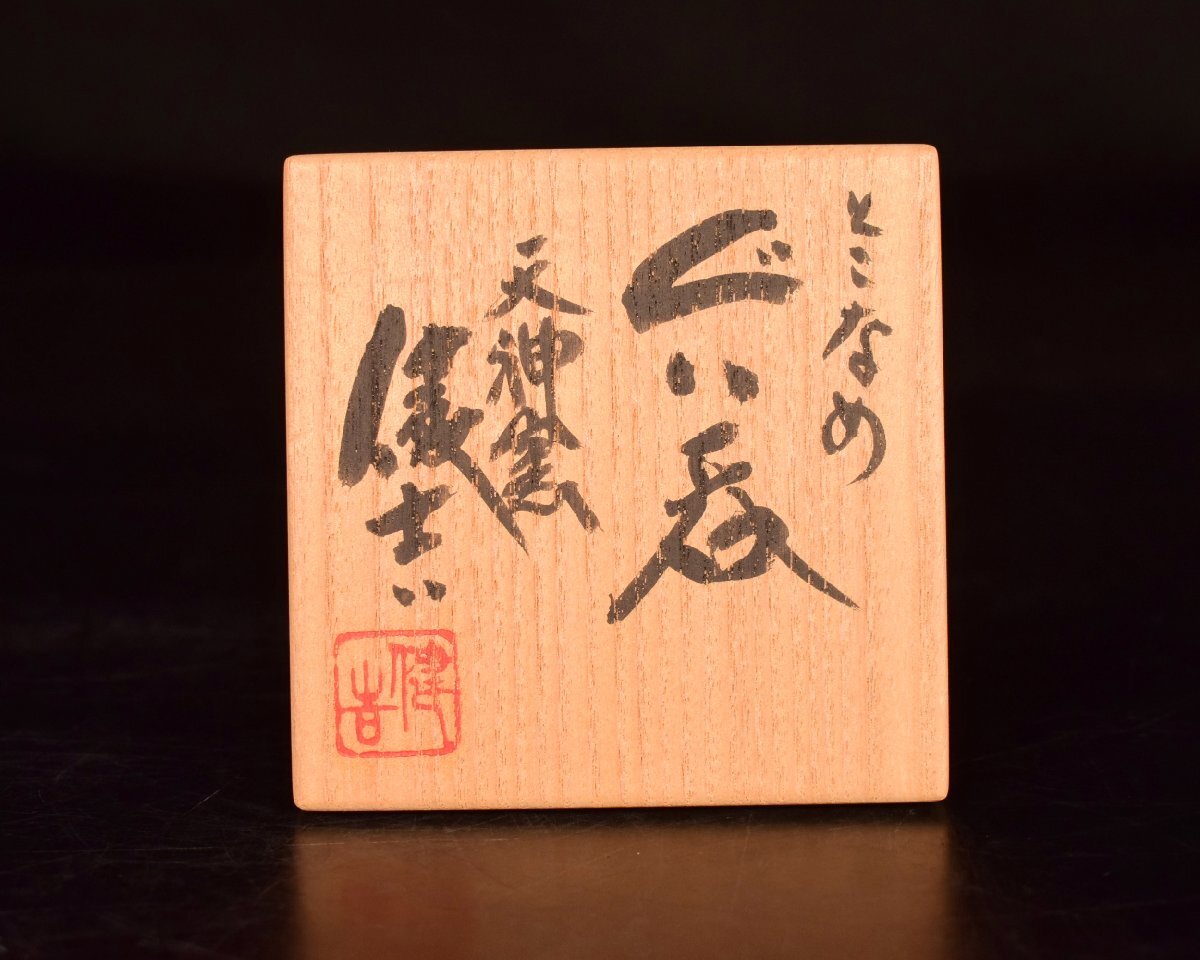 とこなめ
ぐい呑
天神窯
健吉
健吉